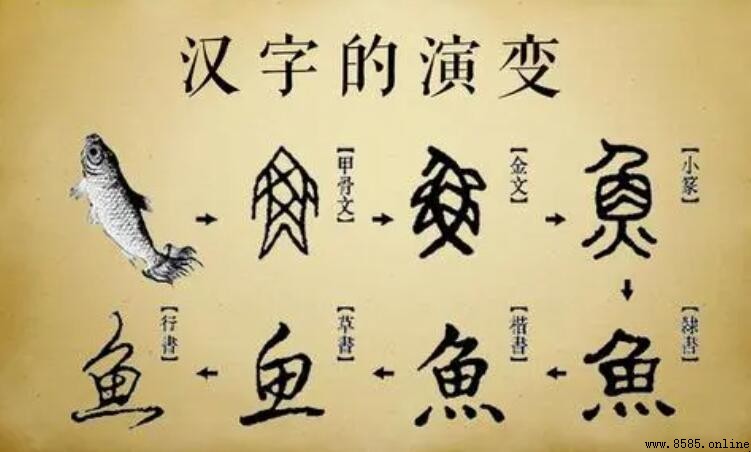 汉字的演变
【甲骨文】
【金文】
【小篆】
【隶书】
魚
【楷書】
魚
【草書】
鱼
【行書】
鱼
www.8585.online